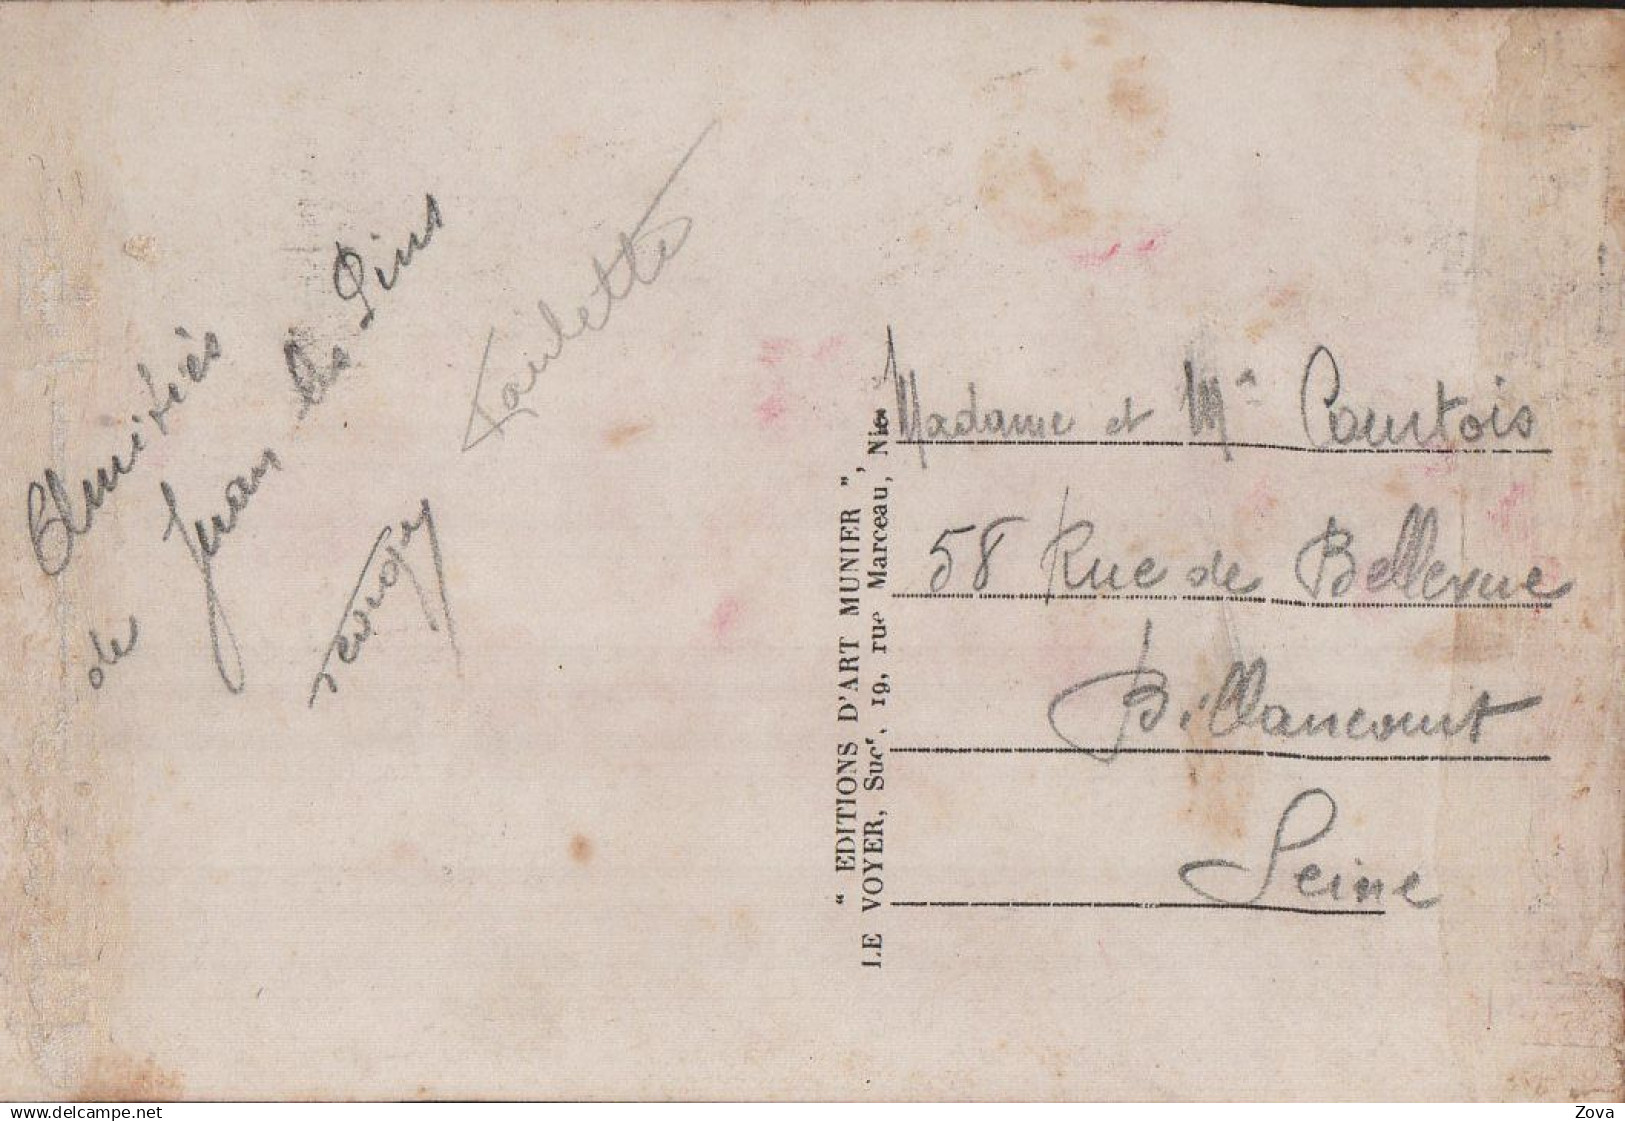 Amitiés
de Juan les Pins
Paulette
"EDITIONS D'ART MUNIER",
LE VOYER, Sucr, 19, rue Marceau, Nice
Madame et Mr Courtois
58 Rue de Bellevue
Billancourt
Seine
delcampe.net
Zova